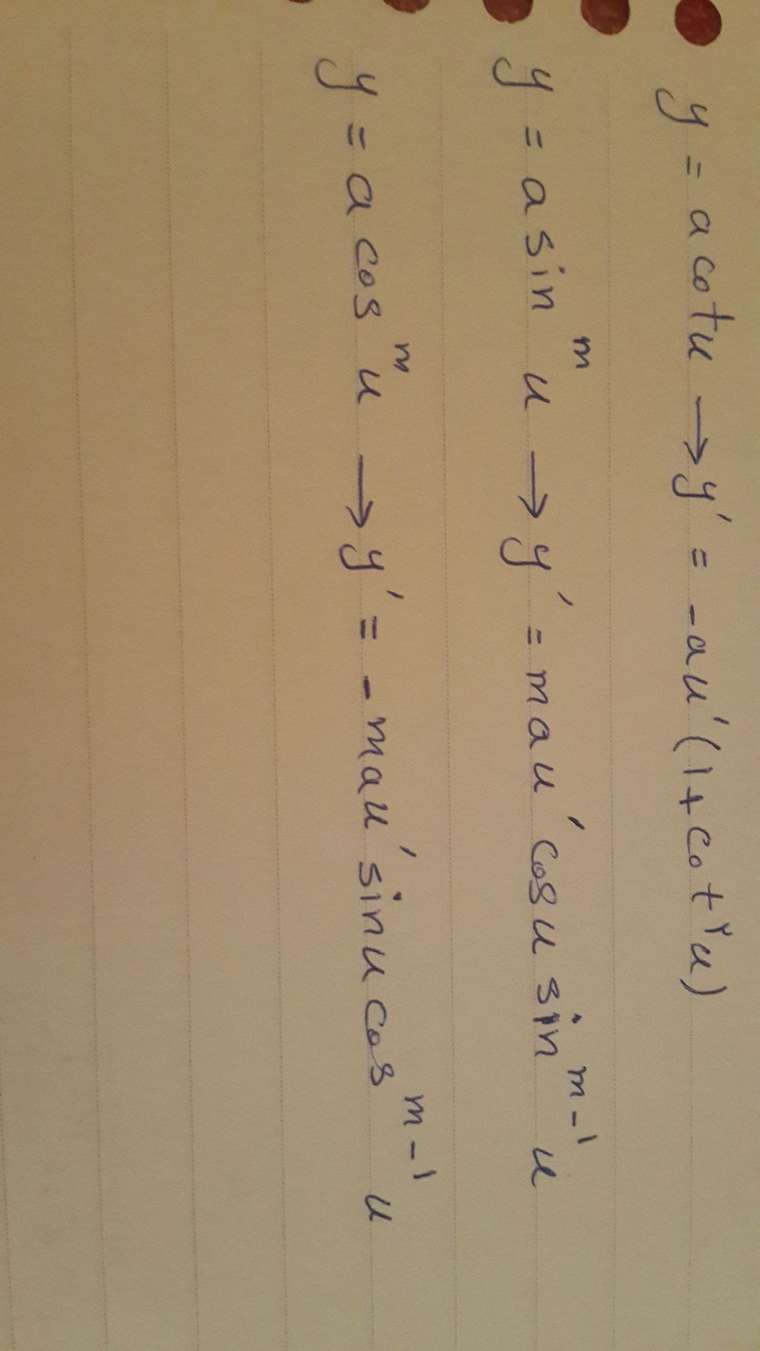 y = a cot u → y' = -au'(1+cot²u)
y = a sin^m u → y' = mau' cos u sin^{m-1} u
y = a cos^m u → y' = -mau' sin u cos^{m-1} u